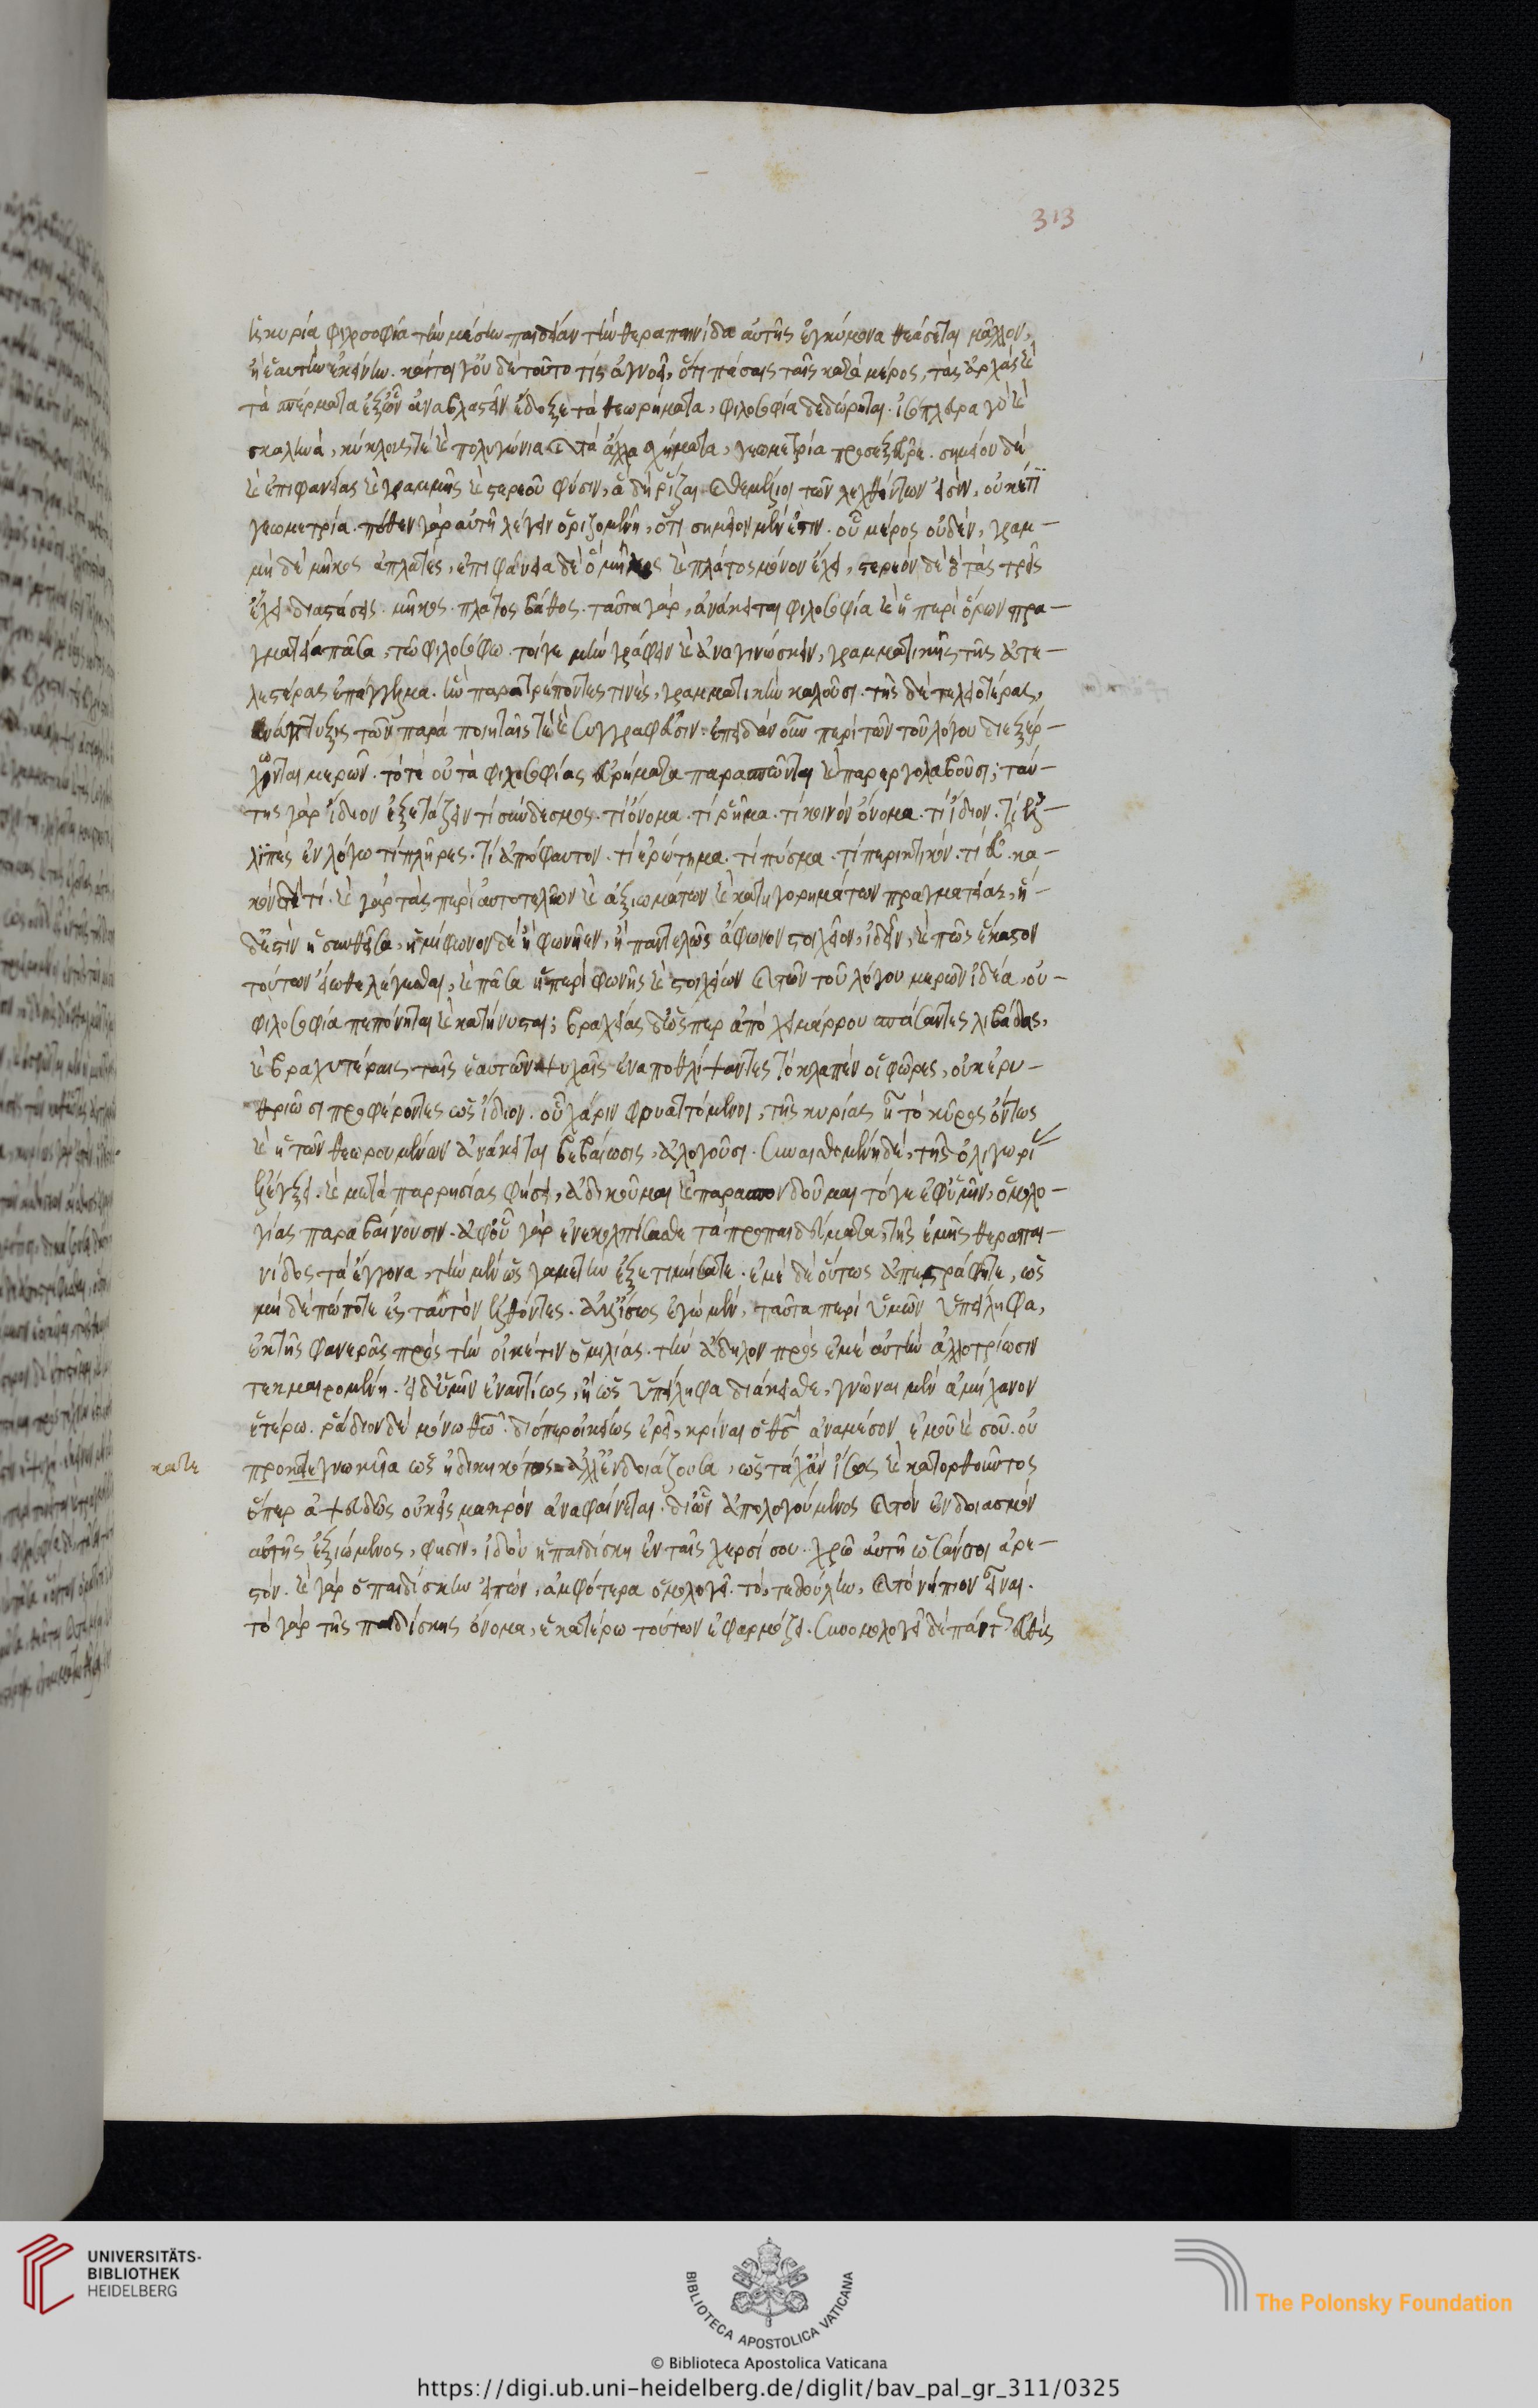 ἡ κυρία φιλοσοφία τὴν μέσην παιδείαν τὴν θεραπαινίδα αὐτῆς ἐγκύμονα θεάσεται μᾶλλον,
ἢ ἑαυτὴν ἐκείνην. καίτοι γ' οὐδὲ τοῦτο τίς ἀγνοεῖ, ὅτι πάσαις ταῖς κατὰ μέρος, τὰς ἀρχὰς καὶ
τὰ σπέρματα ἐξ ὧν ἀναβλαστεῖν ἔδοξε τὰ θεωρήματα, φιλοσοφία δεδώρηται. ἰσόπλευρα γὰρ καὶ
σκαληνά, κύκλους τὲ καὶ πολυγώνια καὶ τὰ ἄλλα σχήματα, γεωμετρία προσεξεῦρε. σημείου δὲ
καὶ ἐπιφανείας καὶ γραμμῆς καὶ στερεοῦ φύσιν, ἃ δὴ ῥίζαι καὶ θεμέλιοι τῶν λεχθέντων εἰσὶν, οὐκέτι
γεωμετρία. πόθεν γὰρ αὐτῇ λέγειν ὁριζομένη, ὅτι σημεῖον μέν ἐστιν. οὗ μέρος οὐδέν, γραμ-
μὴ δὲ μῆκος ἀπλατές, ἐπιφάνεια δὲ ὃ μῆκος καὶ πλάτος μόνον ἔχει, στερεὸν δὲ ὃ τὰς τρεῖς
ἔχει διαστάσεις. μῆκος. πλάτος βάθος. ταῦτα γὰρ, ἀνάκειται φιλοσοφία καὶ ἡ περὶ ὅρων πρα-
γματεία πᾶσα, τῷ φιλοσόφω. τό γε μὴν γράφειν καὶ ἀναγινώσκειν, γραμματικῆς τῆς ἀτε-
λεστέρας ἐπάγγελμα. ἣν παρατρέποντές τινες, γραμματικὴν καλοῦσι. τῆς δὲ τελειοτέρας,
ἀνάπτυξις τῶν παρὰ ποιηταῖς τὲ καὶ συγγραφεῦσιν. ἐπειδὰν οὖν περὶ τῶν τοῦ λόγου διεξέρ-
χωνται μερῶν. τότε οὐ τὰ φιλοσοφίας εὑρήματα παρασπῶνται καὶ παρεργολαβοῦσι; ταύ-
της γὰρ ἴδιον ἐξετάζειν τί σύνδεσμος. τί ὄνομα. τί ῥῆμα. τί κοινὸν ὄνομα. τί ἴδιον. τί ἐλ-
λιπὲς ἐν λόγω τί πλῆρες. τί ἀπόφαντον. τί ἐρώτημα. τί πύσμα. τί περιεκτικόν. τί εὐ
τί. καὶ γὰρ τὰς περὶ αὐτοτελῶν καὶ ἀξιωμάτων καὶ κατηγορημάτων πραγματείας, ἥ
δ' ἐστὶν ἡ συνθεῖσα, ἡμίφωνον δὲ ἢ φωνῆεν, ἢ παντελῶς ἄφωνον στοιχεῖον, ἰδεῖν, καὶ πῶς ἕκαστον
τούτων εἴωθε λέγεσθαι, καὶ πᾶσα ἡ περὶ φωνῆς καὶ στοιχείων καὶ τῶν τοῦ λόγου μερῶν ἰδέα, οὐ
φιλοσοφία πεπόνηται καὶ κατήνυσται; βραχείας δ' ὥσπερ ἀπὸ χειμάρρου σπάσαντες λιβάδας,
καὶ βραχυτέραις ταῖς ἑαυτῶν ψυχαῖς ἐναποθλίψαντες τὸ κλαπὲν οἱ φῶρες, οὐκ ἐρυ-
θριῶσι προφέροντες ὡς ἴδιον. οὗ χάριν φρυαττόμενοι, τῆς κυρίας ᾗ τὸ κῦρος ὄντως
καὶ ἡ τῶν θεωρουμένων ἀνάκειται βεβαίωσις, ἀλογοῦσι. συναισθομένη δὲ, τῆς ὀλιγωρί
ἐλέγξει. καὶ μετὰ παρρησίας φήσει, ἀδικοῦμαι καὶ παρασπονδοῦμαι τό γε ἐφ' ὑμῖν, ὁμολο-
γίας παραβαίνουσιν. ἀφ' οὗ γὰρ ἐνεκολπίσασθε τὰ προπαιδεύματα, τῆς ἐμῆς θεραπαι-
νίδος τὰ ἔγγονα, τὴν μὲν ὡς γαμετὴν ἐξετιμήσατε. ἐμὲ δὲ οὕτως ἀπεστράφητε, ὡς
μὴ δὲ πώποτε εἰς ταὐτὸν ἐλθόντες. ἀλλ' ἴσως ἐγὼ μὲν, ταῦτα περὶ ὑμῶν ὑπείληφα,
ἐκ τῆς φανερᾶς πρὸς τὴν οἰκέτιν ὁμιλίας. τὴν ἄδηλον πρὸς ἐμὲ αὐτὴν ἀλλοτρίωσιν
τεκμαιρομένη. εἰ δ' ὑμεῖν ἐναντίως, ἢ ὡς ὑπείληφα διάκεισθε, γνῶναι μὲν ἀμήχανον
ἑτέρω. ῥάδιον δὲ μόνω θεῶ. διόπερ οἰκείως ἐρεῖ, κρίναι ὁ θεὸς ἀναμέσον ἐμοῦ καὶ σοῦ. οὐ
κατε προκατεγνωκυῖα ὡς ἠδικηκότος ἀλλ' ἐνδοιάζουσα, ὡς τάχ' ἂν ἴσως καὶ κατορθοῦντος
ὅπερ ἀψευδῶς οὐκ εἰς μακρὸν ἀναφαίνεται. δι' ὧν ἀπολογούμενος καὶ τὸν ἐνδοιασμὸν
αὐτῆς ἐξιώμενος, φησὶν, ἰδοὺ ἡ παιδίσκη ἐν ταῖς χερσί σου. χρῶ αὐτῇ ὡς ἄν σοι ἀρε-
στόν. καὶ γὰρ ὁ παιδίσκην εἰπών, ἀμφότερα ὁμολογεῖ. τό, τε δούλην, καὶ τὸ νήπιον εἶναι.
τὸ γὰρ τῆς παιδίσκης ὄνομα, ἑκατέρω τούτων ἐφαρμόζει. συνομολογεῖ δὲ πάντως εὐθὺς
313
UNIVERSITÄTS-
BIBLIOTHEK
HEIDELBERG
BIBLIOTECA APOSTOLICA VATICANA
The Polonsky Foundation
© Biblioteca Apostolica Vaticana
https://digi.ub.uni-heidelberg.de/diglit/bav_pal_gr_311/0325